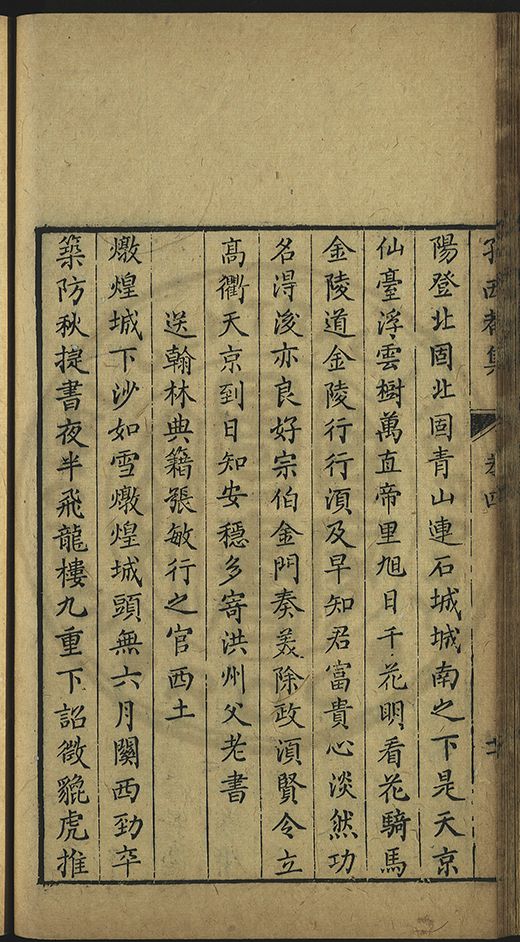 陽登北固北固青山連石城城南之下是天京
仙臺浮雲樹萬直帝里旭日千花明看花騎馬
金陵道金陵行行湏及早知君富貴心淡然功
名得浚亦良好宗伯金門奏羙除政湏賢令立
高衢天京到日知安穏多寄洪州父老書
送翰林典籍張敏行之官西土
燉煌城下沙如雪燉煌城頭無六月關西勁卒
築防秋捷書夜半飛龍樓九重下詔徴貔虎推